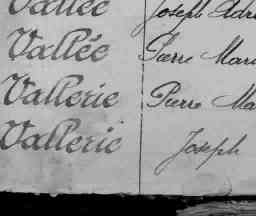 Vallée Joseph Adri
Vallée Pierre Mari
Vallerie Pierre Ma
Vallerie Joseph